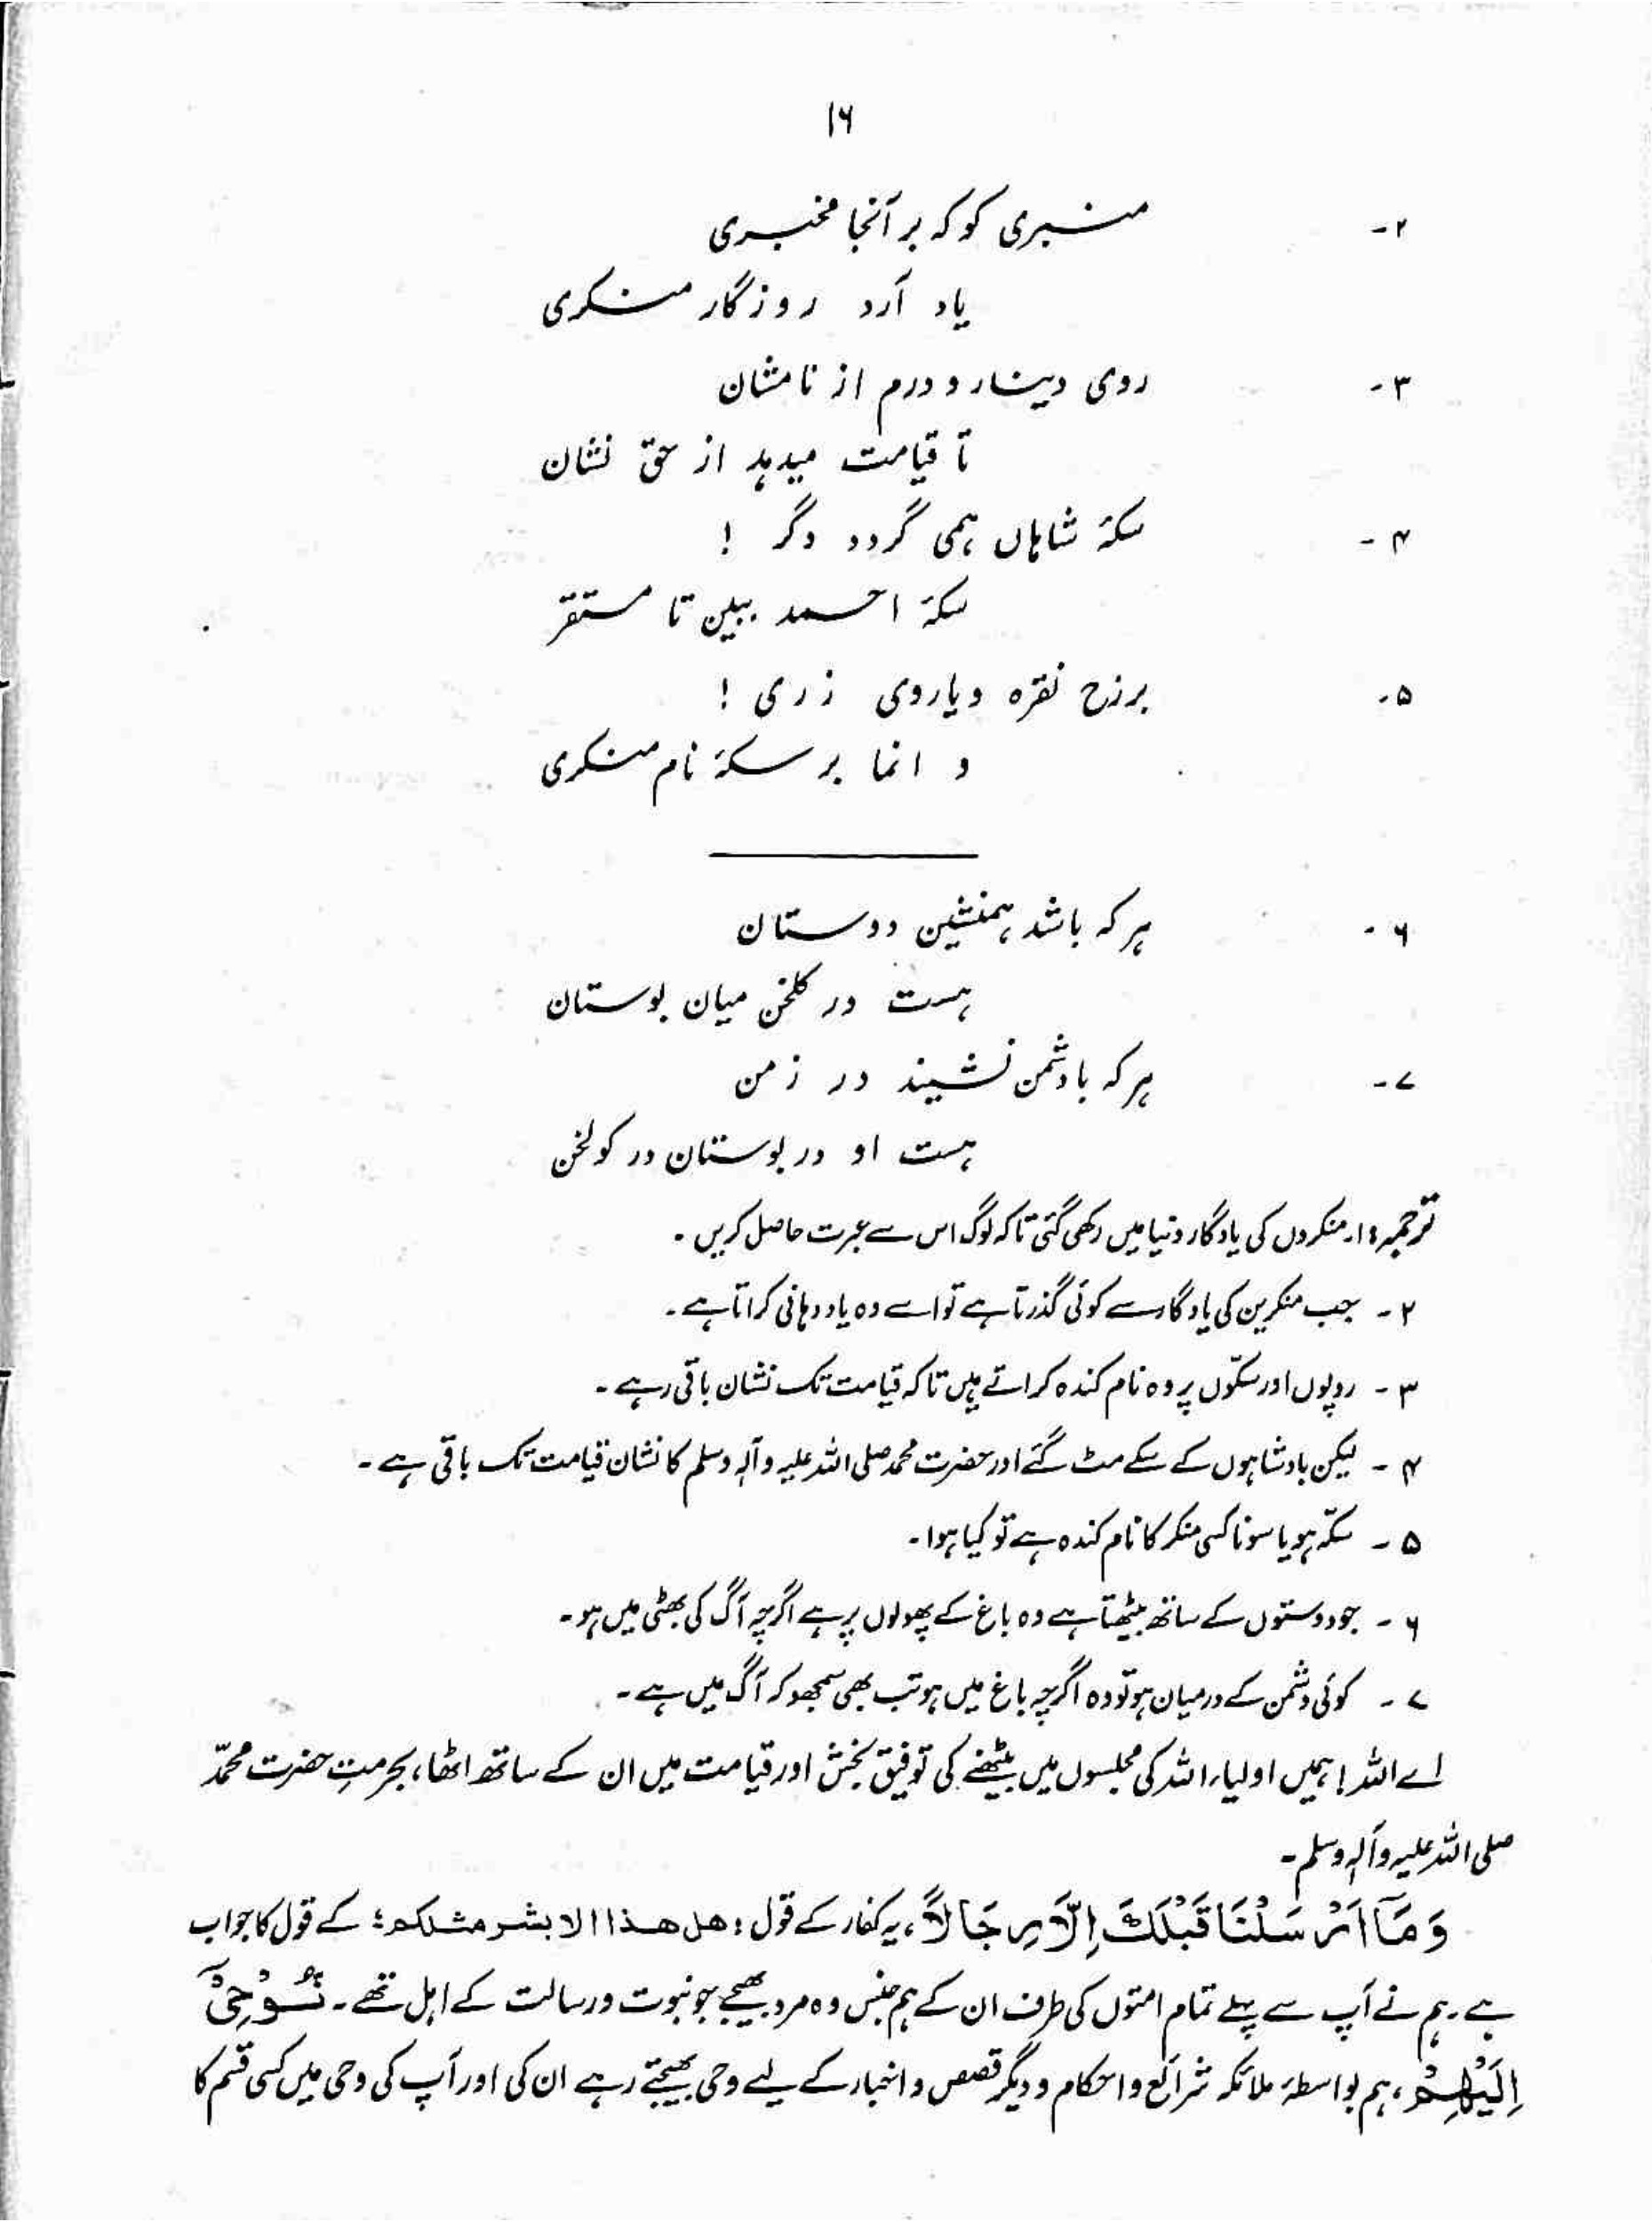 ۱۶
۲- منبری کو کہ بر آنجا مخبری
یاد آرد روزگار منکری
۳- روی دینار و درم از نامشان
تا قیامت میدہد از حق نشان
۴- سکۂ شاہاں ہمی گردد دگر !
سکۂ احمد ببین تا مستقر
۵- برزح نقرہ ویاروی زری !
و انما بر سکۂ نام منکری
۶- ہر کہ باشد ہمنشین دوستان
ہست در گلخن میان بوستان
۷- ہر کہ بادشمن نشیند در زمن
ہست او در بوستان در کولخن
ترجمہ : ۱۔ منکروں کی یادگار دنیا میں رکھی گئی تاکہ لوگ اس سے عبرت حاصل کریں ۔
۲ - جب منکرین کی یادگار سے کوئی گذرتا ہے تو اسے وہ یاد دہانی کراتا ہے ۔
۳ - روپوں اور سکّوں پر وہ نام کندہ کراتے ہیں تاکہ قیامت تک نشان باقی رہے ۔
۴ - لیکن بادشاہوں کے سکے مٹ گئے اور حضرت محمد صلی اللہ علیہ وآلہ وسلم کا نشان قیامت تک باقی ہے ۔
۵ - سکّہ ہو یا سونا کسی منکر کا نام کندہ ہے تو کیا ہوا ۔
۶ - جو دوستوں کے ساتھ بیٹھتا ہے وہ باغ کے پھولوں پر ہے اگرچہ آگ کی بھٹی میں ہو ۔
۷ - کوئی دشمن کے درمیان ہو تو وہ اگرچہ باغ میں ہو تب بھی سمجھو کہ آگ میں ہے ۔
اے اللہ ! ہمیں اولیاء اللہ کی مجلسوں میں بیٹھنے کی توفیق بخش اور قیامت میں ان کے ساتھ اٹھا ، بحرمتِ حضرت محمّد
صلی اللہ علیہ وآلہ وسلم ۔
وَمَآ اَرْسَلْنَا قَبْلَكَ اِلَّا رِجَالاً ، یہ کفار کے قول : هل هذا الا بشر مثلكم ؛ کے قول کا جواب
ہے ۔ ہم نے آپ سے پہلے تمام امتوں کی طرف ان کے ہم جنس وہ مرد بھیجے جو نبوت و رسالت کے اہل تھے ۔ نُّوْحِیْٓ
اِلَيْهِمْ ، ہم بواسطۂ ملائکہ شرائع و احکام و دیگر قصص و اخبار کے لیے وحی بھیجتے رہے ان کی اور آپ کی وحی میں کسی قسم کا